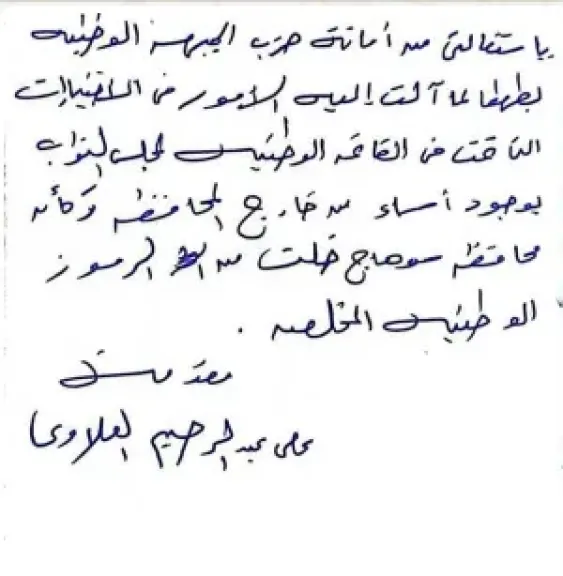 باستقالتى من أمانة حزب الجبهة الوطنية
بطهطا لما آلت إليه الأمور فى الاختيارات
التى تمت فى القائمه الوطنيه لمجلس النواب
بوجود أسماء من خارج المحافظه وكأن
محافظه سوهاج خلت من الرموز
الوطنيه المخلصه .
مقدمه
عبد الرحيم العلاوى